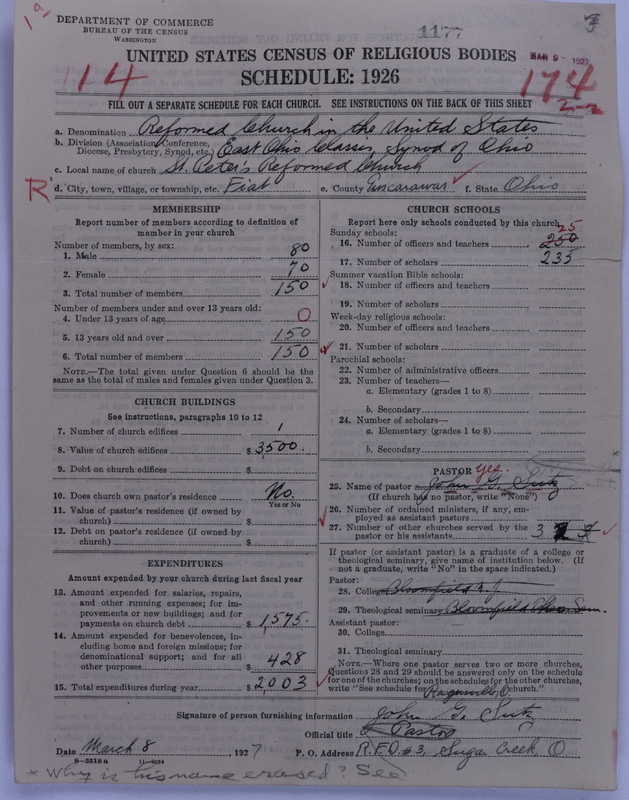 1a
DEPARTMENT OF COMMERCE
BUREAU OF THE CENSUS
WASHINGTON
1177
MAR 9 - 1927
UNITED STATES CENSUS OF RELIGIOUS BODIES
SCHEDULE: 1926
114
174
2-2
FILL OUT A SEPARATE SCHEDULE FOR EACH CHURCH. SEE INSTRUCTIONS ON THE BACK OF THIS SHEET
a. Denomination Reformed Church in the United States
b. Division (Association, Conference, Diocese, Presbytery, Synod, etc.) East Ohio Classis, Synod of Ohio
c. Local name of church St. Peter's Reformed Church
R
d. City, town, village, or township, etc. Fiat e. County Tuscarawas f. State Ohio
MEMBERSHIP
Report number of members according to definition of
member in your church
Number of members, by sex:
1. Male 80
2. Female 70
3. Total number of members 150
Number of members under and over 13 years old:
4. Under 13 years of age 0
5. 13 years old and over 150
6. Total number of members 150
NOTE.—The total given under Question 6 should be the
same as the total of males and females given under Question 3.
CHURCH BUILDINGS
See instructions, paragraphs 10 to 12
7. Number of church edifices 1
8. Value of church edifices $ 3500.
9. Debt on church edifices $
10. Does church own pastor's residence No.
Yes or No
11. Value of pastor's residence (if owned by
church) $
12. Debt on pastor's residence (if owned by
church) $
EXPENDITURES
Amount expended by your church during last fiscal year
13. Amount expended for salaries, repairs,
and other running expenses; for im-
provements or new buildings; and for
payments on church debt $ 1,575.
14. Amount expended for benevolences, in-
cluding home and foreign missions; for
denominational support; and for all
other purposes 428
15. Total expenditures during year $ 2003
CHURCH SCHOOLS
Report here only schools conducted by this church
Sunday schools: 25
16. Number of officers and teachers 250
17. Number of scholars 235
Summer vacation Bible schools:
18. Number of officers and teachers
19. Number of scholars
Week-day religious schools:
20. Number of officers and teachers
21. Number of scholars
Parochial schools:
22. Number of administrative officers
23. Number of teachers—
a. Elementary (grades 1 to 8)
b. Secondary
24. Number of scholars—
a. Elementary (grades 1 to 8)
b. Secondary
PASTOR yes.
25. Name of pastor John G. Sutz
(If church has no pastor, write "None")
26. Number of ordained ministers, if any, em-
ployed as assistant pastors
27. Number of other churches served by the
pastor or his assistants 3
If pastor (or assistant pastor) is a graduate of a college or
theological seminary, give name of institution below. (If
not a graduate, write "No" in the space indicated.)
Pastor:
28. College Bloomfield N. J.
29. Theological seminary Bloomfield Sem.
Assistant pastor:
30. College
31. Theological seminary
NOTE.—Where one pastor serves two or more churches,
Questions 28 and 29 should be answered only on the schedule
for one of the churches; on the schedules for the other churches,
write "See schedule for Ragersville, O. Church."
Signature of person furnishing information John G. Sutz
Official title Pastor
Date March 8 1927 P. O. Address R.F.D #3, Sugar Creek, O
8—5518 a 11—9054
x Why is his name erased? See